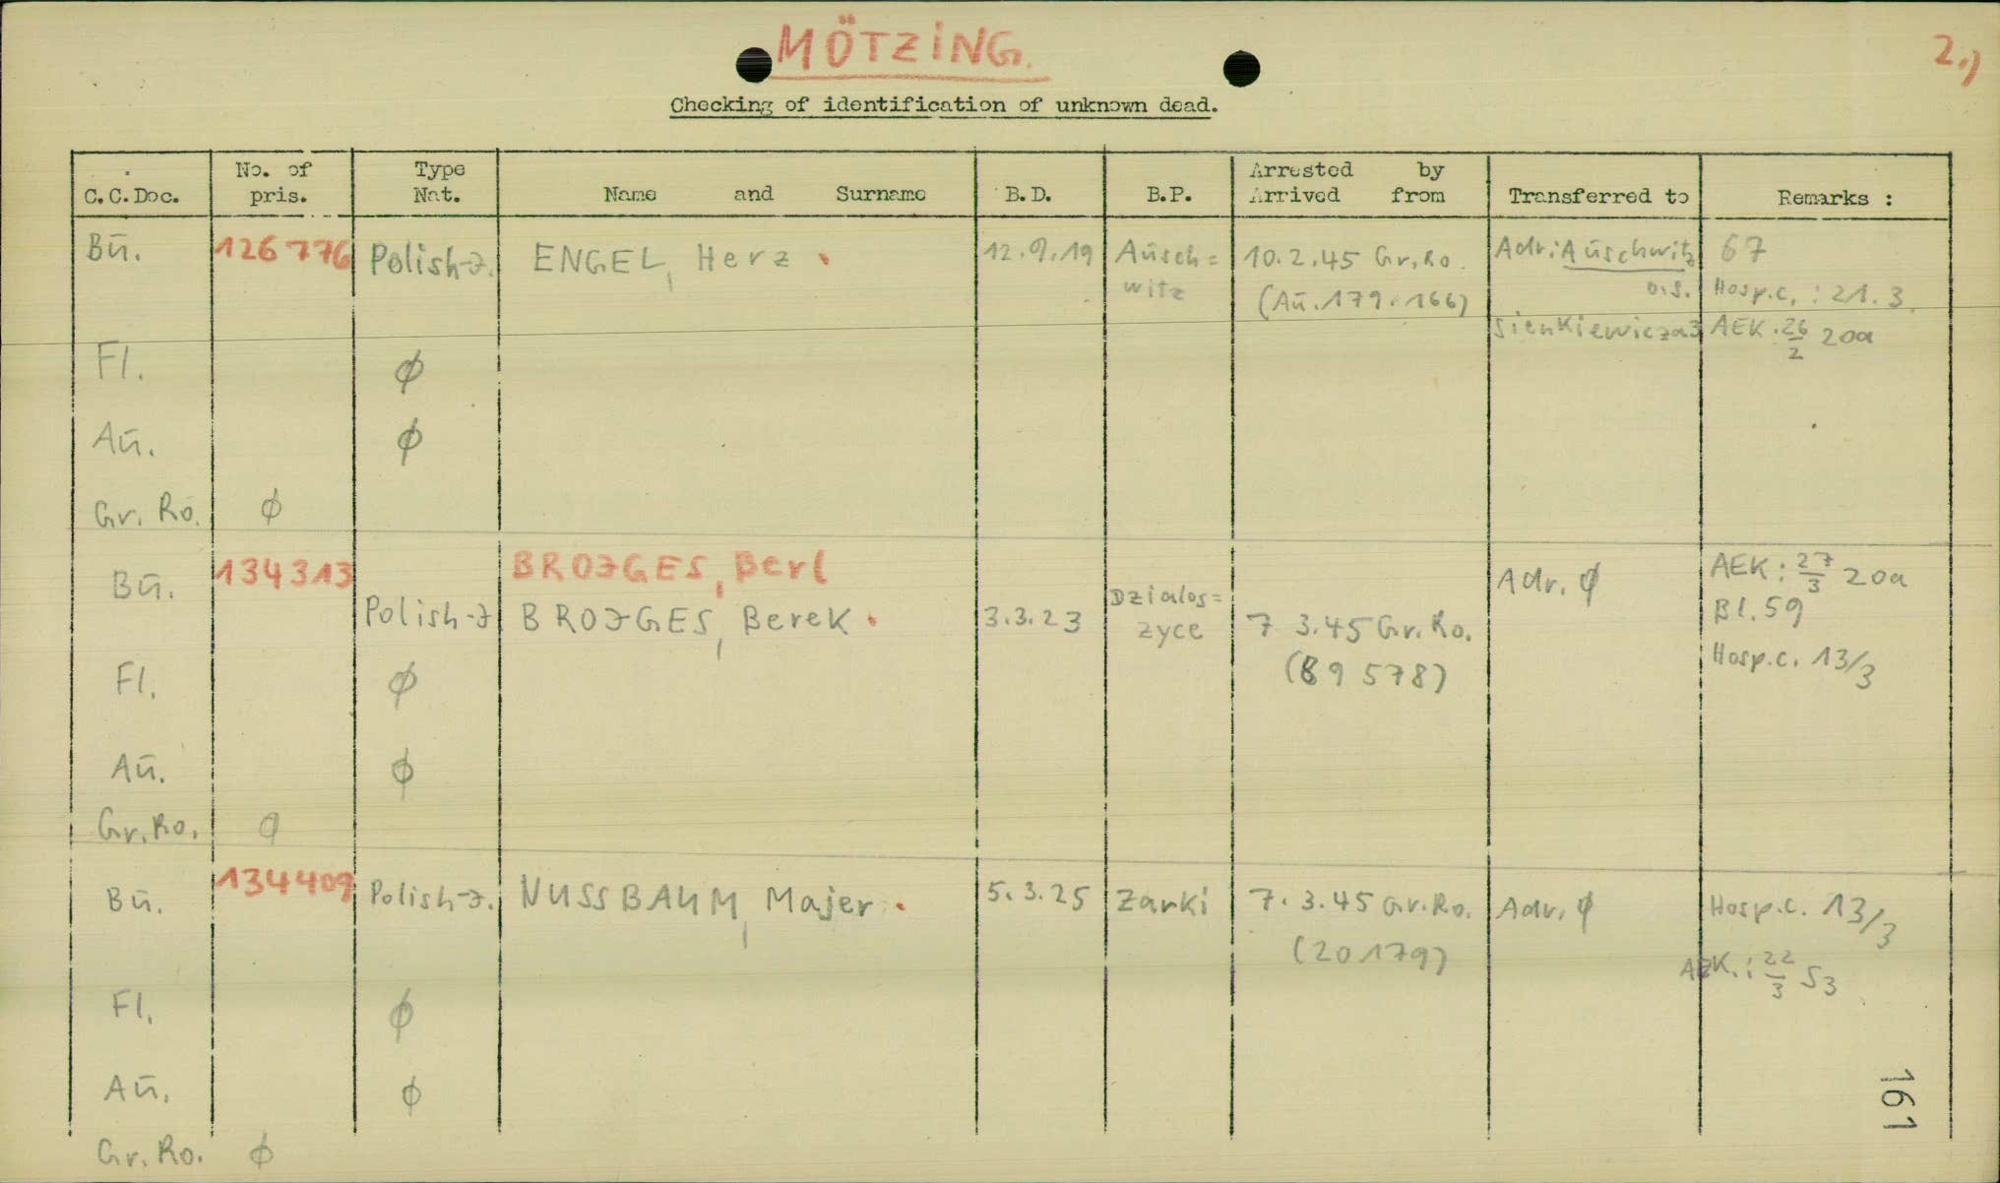 MÖTZING.
2.)
Checking of identification of unknown dead.
C.C.Doc. No. of pris. Type Nat. Name and Surname B.D. B.P. Arrested by Arrived from Transferred to Remarks :
Bū. 126776 Polish-J. ENGEL, Herz 12.9.19 Aūsch= 10.2.45 Gr.Ro. Adr.: Aūschwitz 67
witz (Aū.179.166) O.S. Hosp.c. : 21.3.
Sienkiewicza3 AEK. 26/2 20a
Fl. ϕ
Aū. ϕ
Gr. Ro. ϕ
Bū. 134313 BROJGES, Berl Adr. ϕ AEK: 27/3 20a
Polish-J BROJGES, Berek 3.3.23 Dzialos= 7 3.45 Gr.Ro. Bl.59
zyce (89578) Hosp.c. 13/3
Fl. ϕ
Aū. ϕ
Gr.Ro. ϕ
Bū. 134409 Polish-J. NUSSBAUM, Majer 5.3.25 Zarki 7.3.45 Gr.Ro. Adr. ϕ Hosp.c. 13/3
(20179) AEK.: 22/3 53
Fl. ϕ
Aū. ϕ
Gr.Ro. ϕ
161